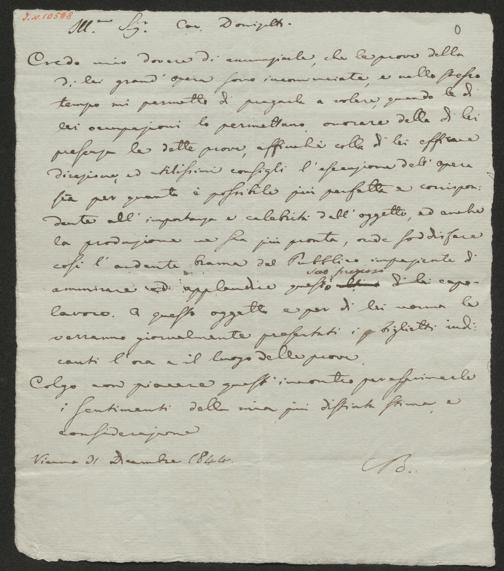 J.N. 10588
Ill.mo Sig.r Cav. Donizetti.
0
Credo mio dovere di annunziarle, che le prove della
di lei grand' opera sono incominciate, e nello stesso
tempo mi permetto di pregarla a volere, quando le di
lei occupazioni lo permettano, onorare della di lei
presenza le dette prove, affinchè colla di lei efficace
direzione, ed utilissimi consigli l'esecuzione dell'opera
sia per quanto è possibile più perfetta e corrispon-
dente all'importanza e celebrità dell'oggetto, ed anche
la produzione ne sia più pronta, onde soddisfare
così l'ardente brama del Pubblico impaziente di
suo prezioso
ammirare ed applaudire questo di lei capo-
lavoro. A questo oggetto e per di lei norma le
verranno giornalmente presentati i biglietti indi-
canti l'ora e il luogo delle prove.
Colgo con piacere quest'incontro per esprimerle
i sentimenti della mia più distinta stima e
considerazione
Vienna 31 Dicembre 1844.
B.